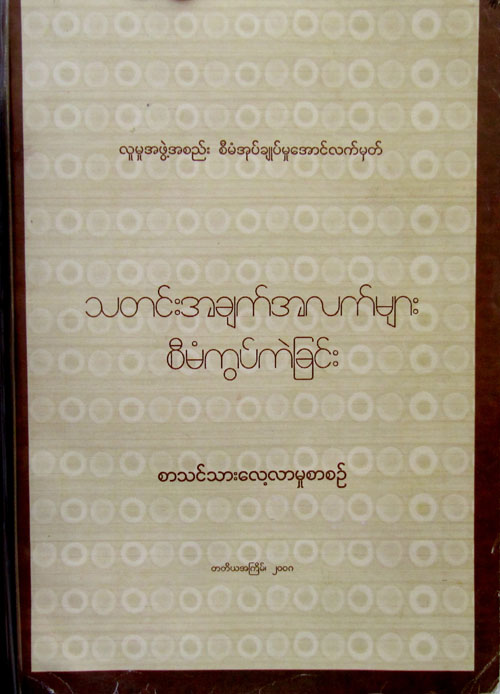 လူမှုအဖွဲ့အစည်း စီမံအုပ်ချုပ်မှုအောင်လက်မှတ်
သတင်းအချက်အလက်များ
စီမံကွပ်ကဲခြင်း
စာသင်သားလေ့လာမှုစာစဉ်
တတိယအကြိမ်၊ ၂၀၀၈